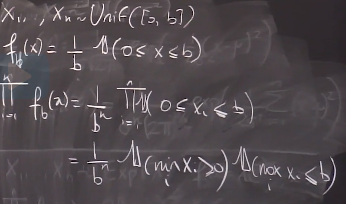 X₁, ..., Xₙ ~ Unif([0, b])
f_b(x) = 1/b 𝟙(0 ≤ x ≤ b)
∏_{i=1}^{n} f_b(x) = 1/bⁿ ∏_{i=1}^{n} 𝟙(0 ≤ xᵢ ≤ b)
= 1/bⁿ 𝟙(min_i xᵢ ≥ 0) 𝟙(max_i xᵢ ≤ b)